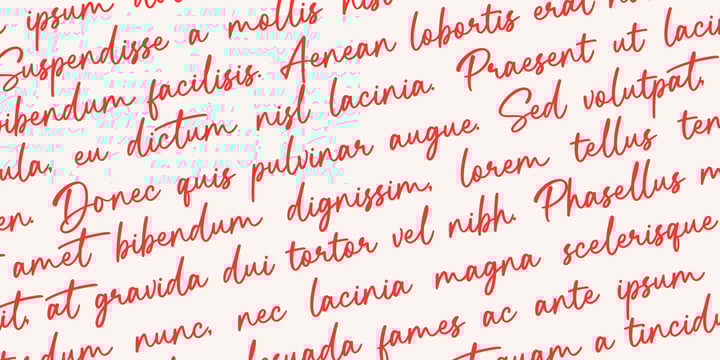 ipsum
Suspendisse a mollis nisl
bibendum facilisis. Aenean lobortis erat
eu dictum nisl lacinia. Praesent ut
en. Donec quis pulvinar augue. Sed volutpat,
amet bibendum dignissim, lorem tellus
at gravida dui tortor vel nibh. Phasellus
nunc, nec lacinia magna scelerisque
fames ac ante ipsum
a